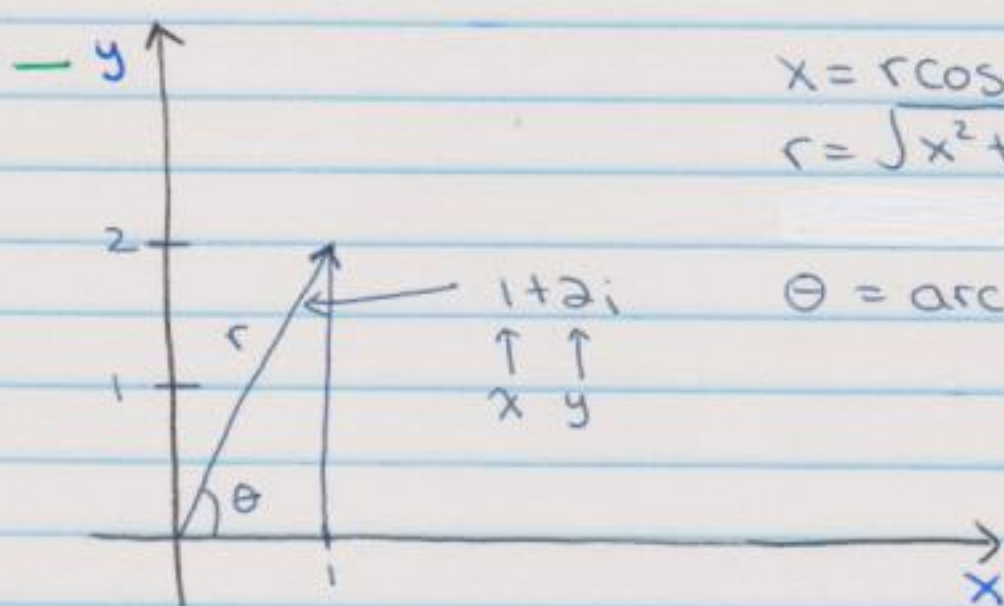 y
x = rcos
r = √x² +
2
1+2i
θ = arc
r
↑ ↑
1
x y
θ
1
x